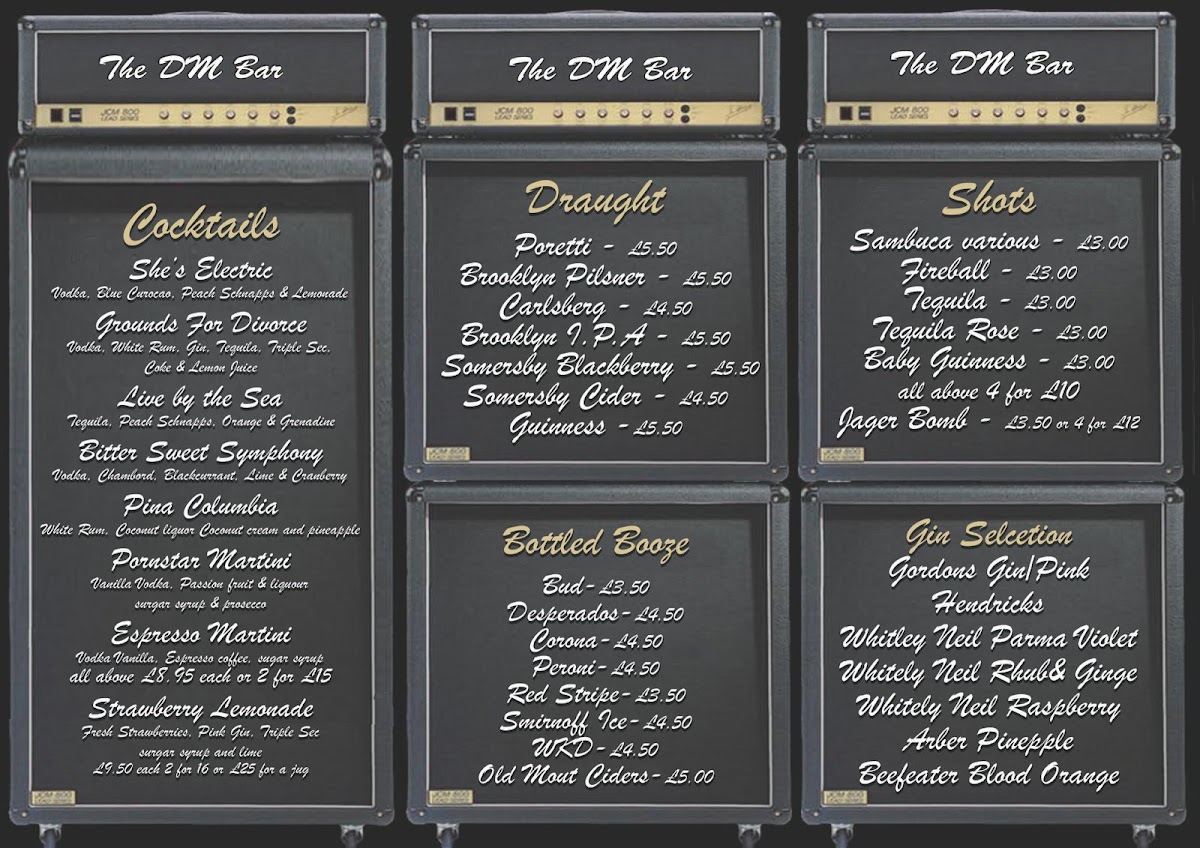 The DM Bar
JCM 800
LEAD SERIES
Cocktails
She's Electric
Vodka, Blue Curocao, Peach Schnapps & Lemonade
Grounds For Divorce
Vodka, White Rum, Gin, Tequila, Triple Sec,
Coke & Lemon Juice
Live by the Sea
Tequila, Peach Schnapps, Orange & Grenadine
Bitter Sweet Symphony
Vodka, Chambord, Blackcurrant, Lime & Cranberry
Pina Columbia
White Rum, Coconut liquor Coconut cream and pineapple
Pornstar Martini
Vanilla Vodka, Passion fruit & liquour
surgar syrup & prosecco
Espresso Martini
Vodka Vanilla, Espresso coffee, sugar syrup
all above £8.95 each or 2 for £15
Strawberry Lemonade
Fresh Strawberries, Pink Gin, Triple Sec
surgar syrup and lime
£9.50 each 2 for 16 or £25 for a jug
JCM 800
LEAD SERIES
The DM Bar
JCM 800
LEAD SERIES
Draught
Poretti - £5.50
Brooklyn Pilsner - £5.50
Carlsberg - £4.50
Brooklyn I.P.A - £5.50
Somersby Blackberry - £5.50
Somersby Cider - £4.50
Guinness - £5.50
JCM 800
LEAD SERIES
Bottled Booze
Bud- £3.50
Desperados- £4.50
Corona- £4.50
Peroni- £4.50
Red Stripe- £3.50
Smirnoff Ice- £4.50
WKD- £4.50
Old Mout Ciders- £5.00
JCM 800
LEAD SERIES
The DM Bar
JCM 800
LEAD SERIES
Shots
Sambuca various - £3.00
Fireball - £3.00
Tequila - £3.00
Tequila Rose - £3.00
Baby Guinness - £3.00
all above 4 for £10
Jager Bomb - £3.50 or 4 for £12
JCM 800
LEAD SERIES
Gin Selcetion
Gordons Gin/Pink
Hendricks
Whitley Neil Parma Violet
Whitely Neil Rhub& Ginge
Whitely Neil Raspberry
Arber Pinepple
Beefeater Blood Orange